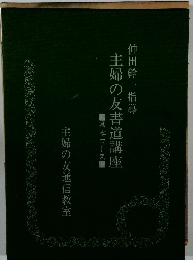 仲田幹一指導
主婦の友書道講座
主婦の友通信教室